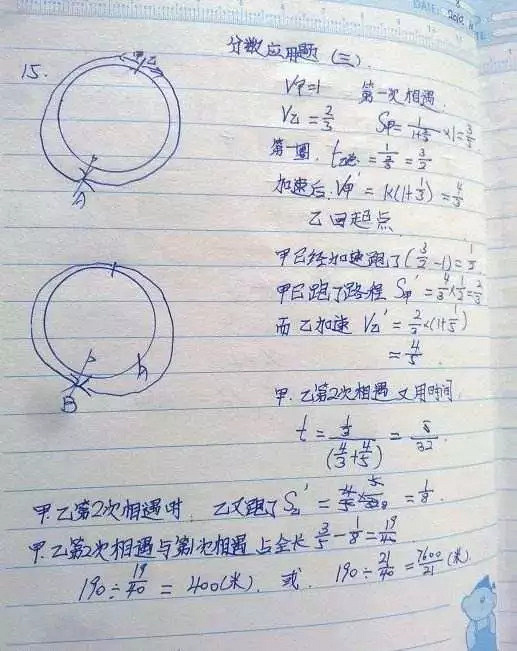 分数应用题 (三)
15.
V甲=1 第一次相遇
V乙=2/3 S甲=1/(1+2/3)×1=3/5
第一圈. t乙=1/(2/3)=3/2
加速后. V甲'=1×(1+1/3)=4/3
乙回起点
甲已经加速跑了(3/2-1)=1/2
甲已跑了路程 S甲'=4/3×1/2=2/3
而乙加速 V乙'=2/3×(1+1/5)
=4/5
甲.乙第2次相遇 又用时间
t=(1/3)/(4/3+4/5)=5/32
甲.乙第2次相遇时. 乙又跑了S乙'=4/5×5/32=1/8
甲.乙第2次相遇与第1次相遇占全长 3/5-1/8=19/40
190÷19/40=400(米). 或. 190÷21/40=7600/21(米)
A
B